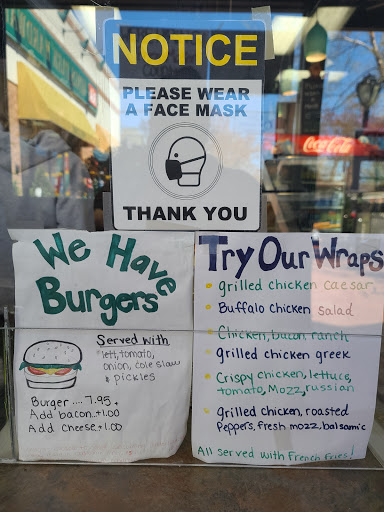 NOTICE
PLEASE WEAR
A FACE MASK
THANK YOU
Coca-Cola
We Have
Burgers
Served with
lett, tomato,
onion, cole slaw
& pickles
Burger .... 7.95.
Add bacon.+1.00
Add cheese.+1.00
Try Our Wraps
grilled chicken caesar
Buffalo chicken salad
Chicken, bacon, ranch
grilled chicken greek
Crispy chicken, lettuce,
tomato, Mozz, russian
grilled chicken, roasted
Peppers, fresh mozz, balsamic
All served with French Fries!